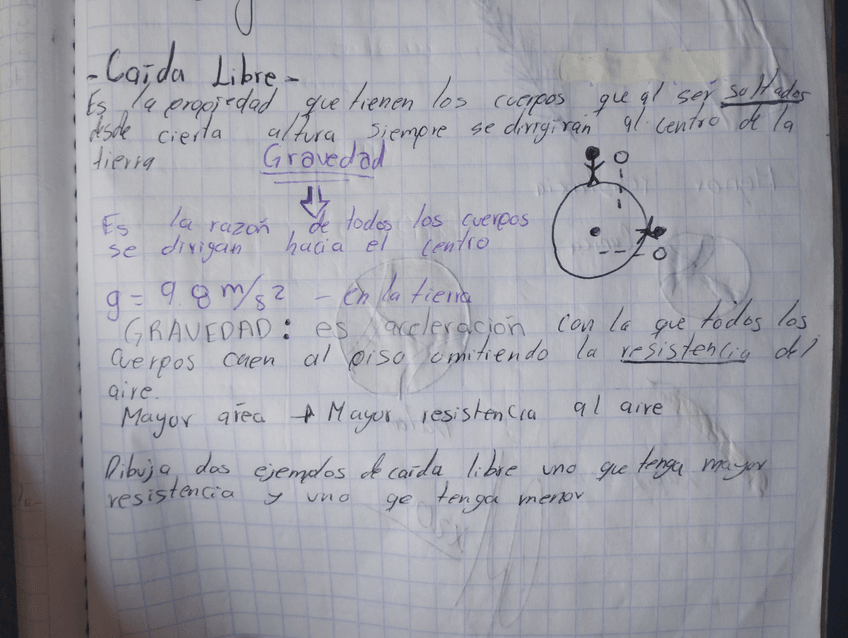 - Caída Libre -
Es la propiedad que tienen los cuerpos que al ser soltados
desde cierta altura siempre se dirigirán al centro de la
tierra
Gravedad
Es la razón de todos los cuerpos
se dirigan hacia el centro
g = 9.8 m/s2 - en la tierra
GRAVEDAD: es aceleración con la que todos los
cuerpos caen al piso omitiendo la resistencia del
aire.
Mayor área → Mayor resistencia al aire
Dibuja dos ejemplos de caída libre uno que tenga mayor
resistencia y uno qe tenga menor